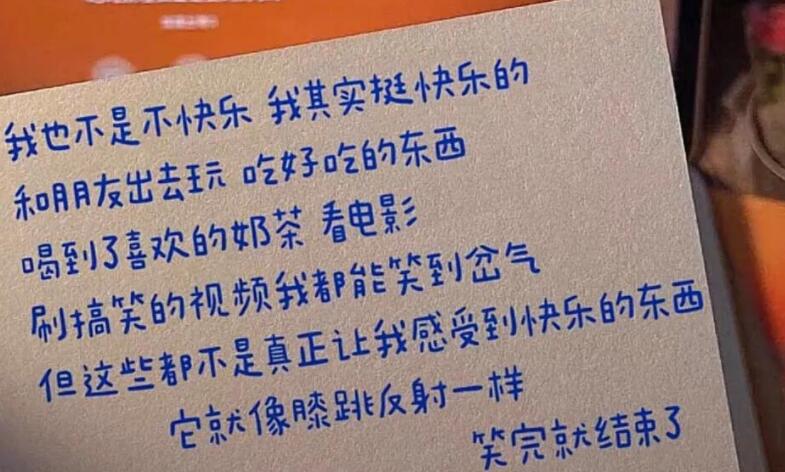 我也不是不快乐 我其实挺快乐的
和朋友出去玩 吃好吃的东西
喝到了喜欢的奶茶 看电影
刷搞笑的视频我都能笑到岔气
但这些都不是真正让我感受到快乐的东西
它就像膝跳反射一样
笑完就结束了